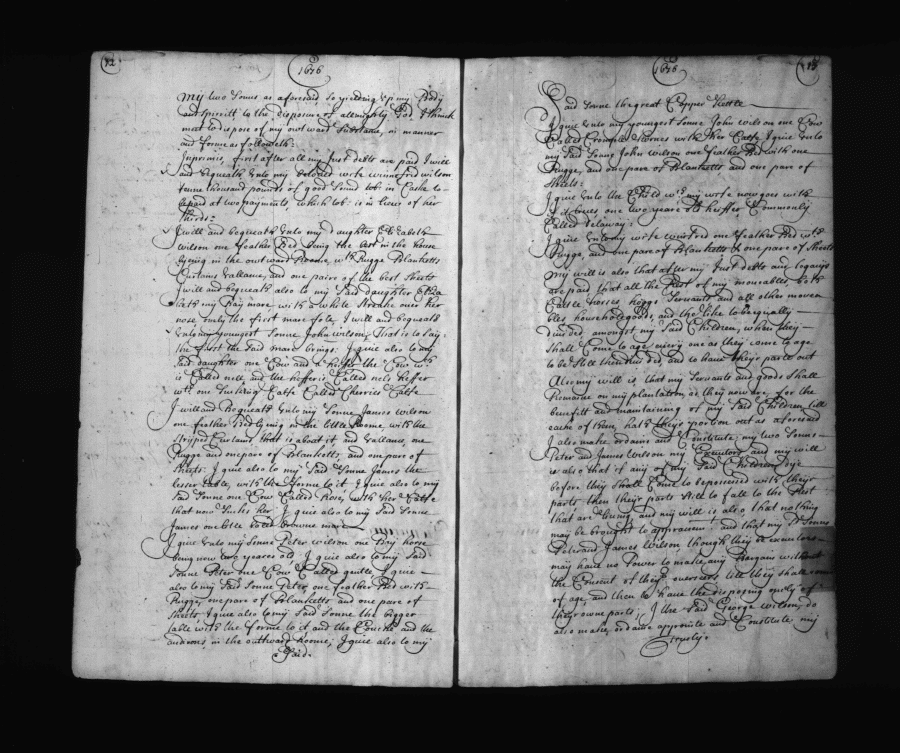 12
1676
my two Sonns as aforesaid, so yielding up my Body
and spiritt to the disposure of allmighty God, I think
meet to dispose of my outward Substance, in manner
and forme as followeth:
Imprimis, first after all my Just debts are paid I will
and bequeath unto my beloved wife winnifrid wilson
tenne thousand pounds of good sound tob: in Caske to
be paid at two payments, which tob: is in lieu of her
thirds:
I will and bequeath unto my daughter Elizabeth
wilson one feather Bed being the best in the house
lying in the outward Roome, wth Rugge Blanketts
Curtains Vallains, and one paire of the best sheets
I will and bequeath also to my said daughter Eliza
beth my Bay mare with a white Streake over her
nose, only the first mare fole, I will and bequeath
unto my youngest Sonne John wilson, That is to say,
the first the said mare brings: I give also to my
said daughter one Cow and a heiffer the Cow wch
is Called nell, and the heffer is Called nels heffer
wth one sucking Calfe Called Cherries Calfe
I will and Bequeath unto my Sonne James wilson
one feather Bed lying in the little Roome, with the
stripped Curtains that is about it, and vallance, one
Rugge and one paire of Blanketts, and one pare of
sheets: I give also to my said Sonne James the
lesser table, with the forme to it I give also to my
said Sonne one Cow Called Rose, with her Calfe
that now sucks her, I give also to my said Sonne
James one little browne mare
I give unto my Sonne Peter wilson one Bay horse
being now two yeares old, I give also to my said
Sonne Peter one Cow Called gentle I give
also to my said Sonne Peter, one feather Bed with
Rugge, one pare of Blanketts and one pare of
sheets I give also to my said Sonne the bigger
table with the forme to it, and the Courch and the
andirons, in the outward Roome; I give also to my
said
1676
13
Said Sonne the great Copper Kettle
I give unto my youngest Sonne John wilson one Cow
Called Crompled Hornes with her Calfe I give unto
my said Sonne John wilson one feather Bed with one
Rugge, and one pare of Blanketts and one pare of
sheets:
I give unto the Child wch my wife now goes with
if it lives, one two yeare old heiffer Commonly
Called
I give unto my wife winifred one feather Bed wth
Rugge, and one pare of Blanketts & one pare of sheets
my will is also that after my Just debts and legacys
are paid that all the Rest of my moveables, both
Cattle horses, hoggs, Servants and all other movea
bles, household goods, and the like to be equally
divided amongst my said Children, when they
shall Come to age, every one as they come to age
to be still then divided, and to have their parte out
Also my will is, that my servants and goods shall
Remaine on my plantation, as they now are, for the
benefitt and maintaining of my said Children, till
each of them, hath their portion out as aforesaid
I also make ordaine and Constitute, my two Sonns
Peter and James wilson my Executors and my will
is also that if any of my said Children dye
before they shall Come to be possessed with their
parts, then their parts still to fall to the Rest
that are living, and my will is also that nothing
may be brought to appraismt: and that my sd Sonns
Peter and James wilson though they be executors
may have no Power to make any Bargain without
the Consent of their overseers till they shall come
of age, and then to have the disposing only of
their owne parts; I the said George wilson, do
also make, ordaine appointe and Constitute my